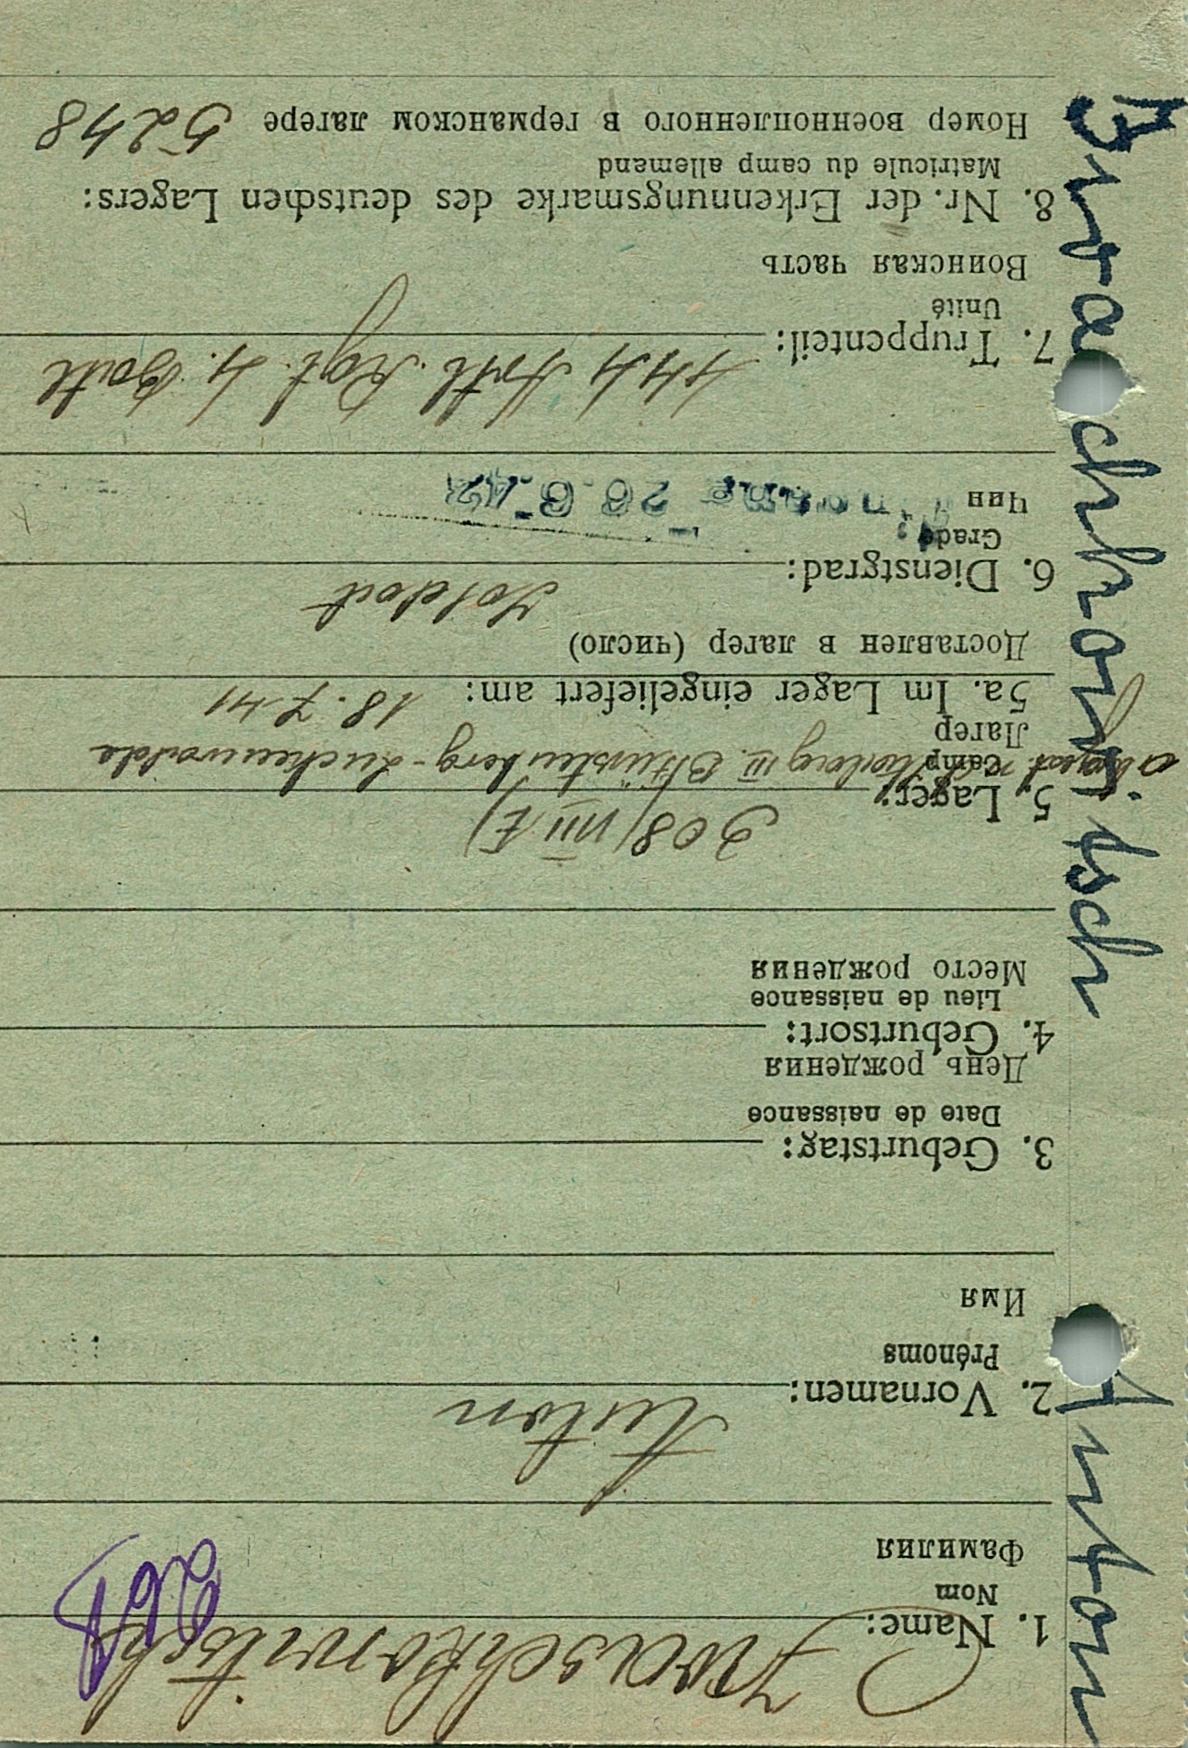 1. Name: Iwaschkowitsch
Nom
Фамилия
2. Vornamen: Anton
Prénoms
Имя
3. Geburtstag:
Date de naissance
День рождения
4. Geburtsort:
Lieu de naissance
Место рождения
5. Lager: 308/VIII E)
Camp
Лагер
5a. Im Lager eingeliefert am: 18.7.41
Доставлен в лагер (число)
6. Dienstgrad: Soldat
Grade
Чин
26.6.42
7. Truppenteil: 444 Artl. Regt. 4. Batl
Unité
Воинская часть
8. Nr. der Erkennungsmarke des deutschen Lagers:
Matricule du camp allemand
Номер военнопленного в германском лагере 5248
Anton